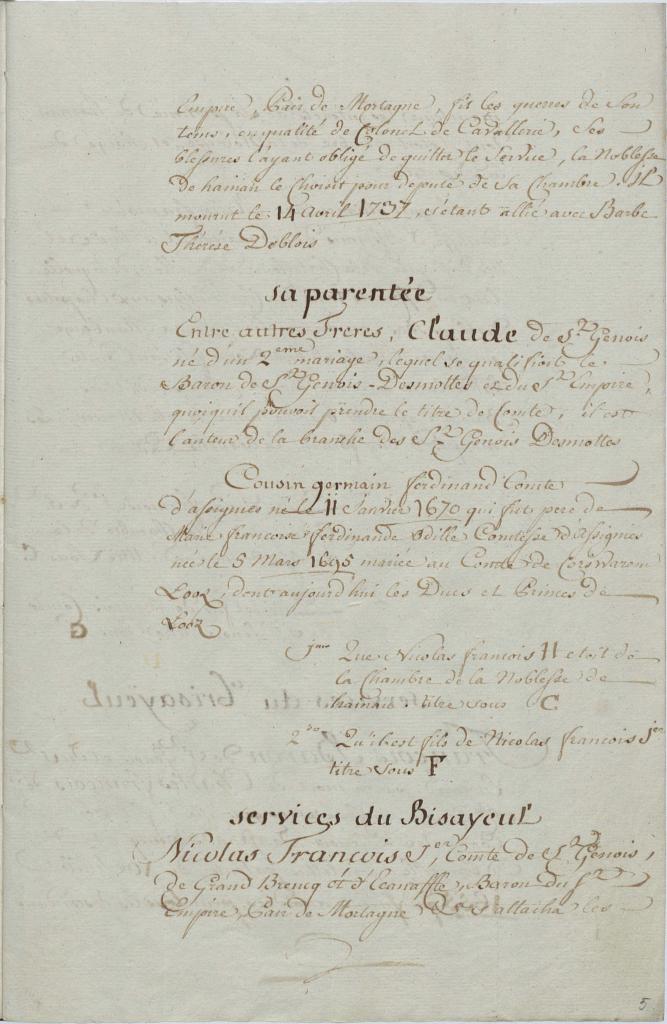 Empire, Pair de Mortagne, fit les guerres de Son
tems, en qualité de Colonel de Cavallerie, Ses
blessures l'ayant obligé de quitter le Service, la Noblesse
de hainau le Choisit pour deputé de Sa Chambre. Il
mourut le 14 avril 1737, s'étant allié avec Barbe
Thérèse Deblois
sa parentée
Entre autres Freres, Claude de St. Genois
né d'un 2eme mariage, lequel se qualifioit le
Baron de St. Genois-Desmottes et du St. Empire,
quoiquil pouvoit prendre le titre de Comte, il est
l'auteur de la branche des St. Genois Desmottes
Cousin germain ferdinand Comte
d'assignies né le 11 Janvier 1670 qui fut pere de
Marie francoise ferdinande Odille Comtesse d'Assignies
née le 5 Mars 1695 mariée au Comte de Corswarem
Looz, dont aujourd'hui les Ducs et Princes de
Looz
1mo Que Nicolas francois II etoit de
la Chambre de la Noblesse de
hainau: titre sous C
2do Qu'il est fils de Nicolas francois Ier
titre sous F
services du Bisayeul
Nicolas Francois Ier, Comte de St. Genois,
de Grand Breucq et d'Ecanaffle, Baron du St.
Empire, Pair de Mortagne &ca s'attacha les
5